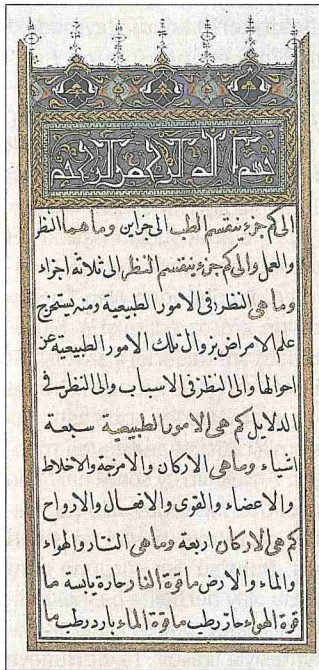 بسم الله الرحمن الرحيم
الى كم جزء ينقسم الطب الى جزاين وما هما النظر
والعمل والى كم جزء ينقسم النظر الى ثلاثة اجزاء
وما هى النظر فى الامور الطبيعية ومنه يستخرج
علم الامراض بزوال تلك الامور الطبيعية عن
احوالها والى النظر فى الاسباب والى النظر فى
الدلايل كم هى الامور الطبيعية سبعة
اشياء وما هى الاركان والامزجة والاخلاط
والاعضاء والقوى والافعال والارواح
كم هى الاركان اربعة وما هى النار والهواء
والماء والارض ما قوة النار حارة يابسة ما
قوة الهواء حار رطب ما قوة الماء بارد رطب ما